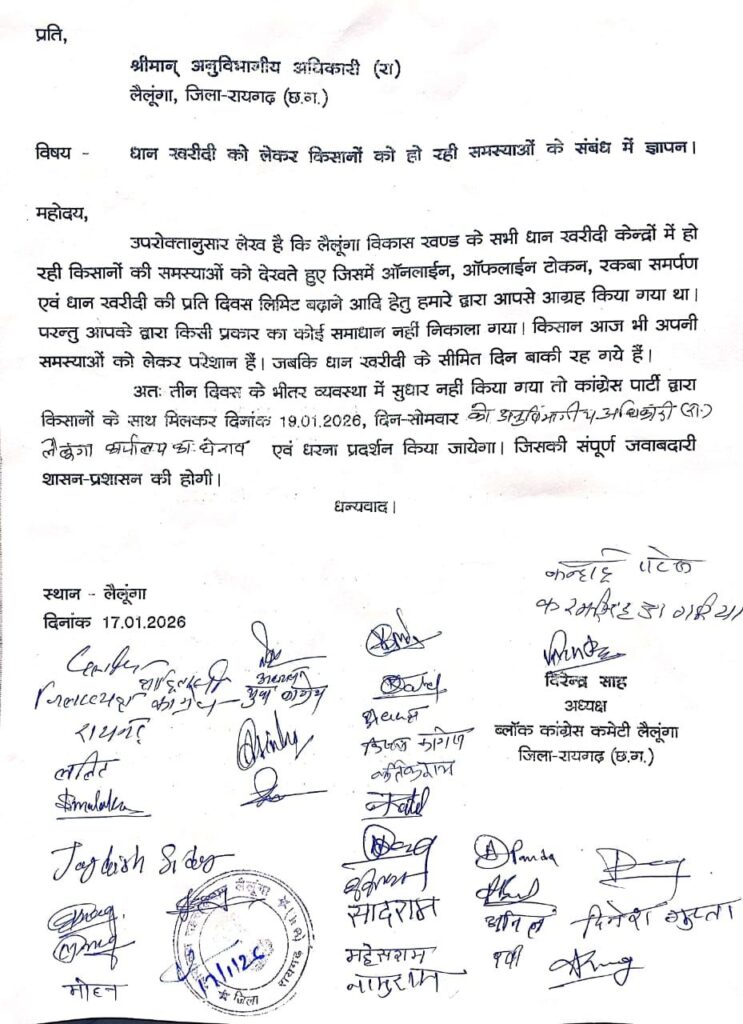 प्रति,
श्रीमान् अनुविभागीय अधिकारी (रा)
लैलूंगा, जिला-रायगढ़ (छ.ग.)
विषय - धान खरीदी को लेकर किसानों को हो रही समस्याओं के संबंध में ज्ञापन।
महोदय,
उपरोक्तानुसार लेख है कि लैलूंगा विकास खण्ड के सभी धान खरीदी केन्द्रों में हो
रही किसानों की समस्याओं को देखते हुए जिसमें ऑनलाईन, ऑफलाईन टोकन, रकबा समर्पण
एवं धान खरीदी की प्रति दिवस लिमिट बढ़ाने आदि हेतु हमारे द्वारा आपसे आग्रह किया गया था।
परन्तु आपके द्वारा किसी प्रकार का कोई समाधान नहीं निकाला गया। किसान आज भी अपनी
समस्याओं को लेकर परेशान हैं। जबकि धान खरीदी के सीमित दिन बाकी रह गये हैं।
अतः तीन दिवस के भीतर व्यवस्था में सुधार नहीं किया गया तो कांग्रेस पार्टी द्वारा
किसानों के साथ मिलकर दिनांक 19.01.2026, दिन-सोमवार को अनुविभागीय अधिकारी (रा.)
लैलूंगा कार्यालय का घेराव एवं धरना प्रदर्शन किया जायेगा। जिसकी संपूर्ण जवाबदारी
शासन-प्रशासन की होगी।
धन्यवाद।
स्थान - लैलूंगा
दिनांक 17.01.2026
दिरेन्द्र साह
अध्यक्ष
ब्लॉक कांग्रेस कमेटी लैलूंगा
जिला-रायगढ़ (छ.ग.)
रायगढ़
ललित
Patel
Jagdish Sidar
Panda
सादराम
दिनेश गुप्ता
महेसराम
मोहन
लैलूंगा
जिला रायगढ़
17/1/26